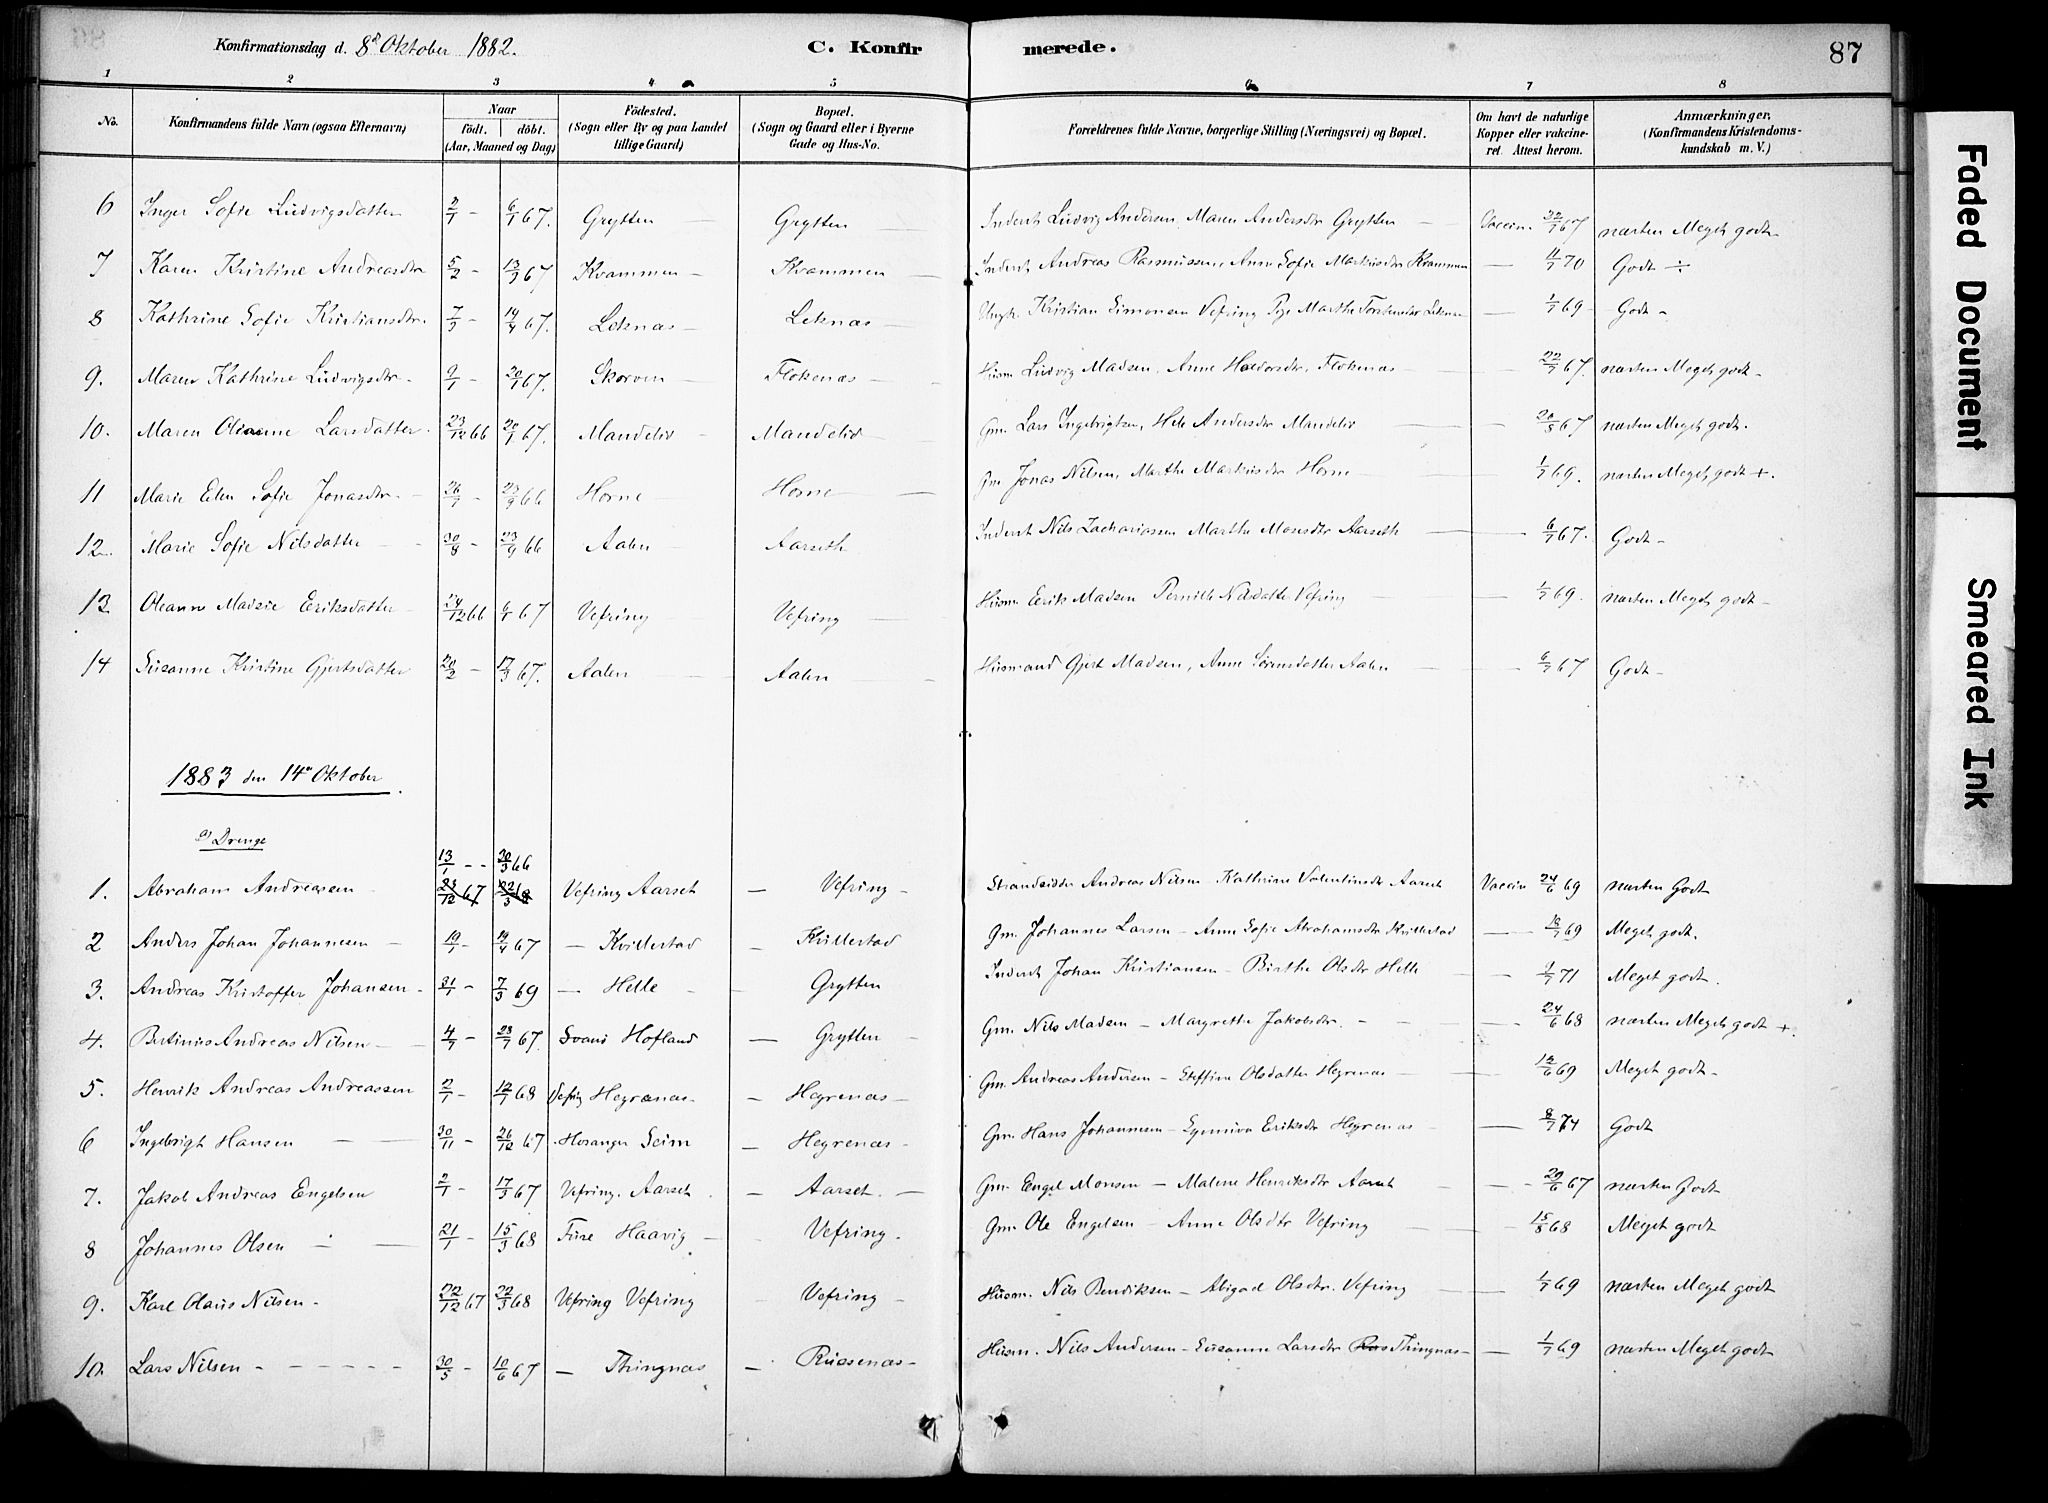 Konfirmationsdag d. 8de Oktober 1882. C. Konfirmerede. 87
1 2 3 4 5 6 7 8
No. Konfirmandens fulde Navn (ogsaa Efternavn) Naar födt. döbt. (Aar, Maaned og Dag) Födested. (Sogn eller By og paa Landet tillige Gaard) Bopæl. (Sogn og Gaard eller i Byerne Gade og Hus-No. Forældrenes fulde Navne, borgerlige Stilling (Næringsvei) og Bopæl. Om havt de naturlige Kopper eller vakcineret. Attest herom. Anmærkninger, (Konfirmandens Kristendomskundskab m. V.)
6 Inger Sofie Ludvigsdatter 2/1 - 6/1 67. Grytten Grytten Inderst Ludvig Andersen, Maren Andersdtr Grytten Vaccin. 67 næsten Meget godt
7 Karen Kristine Andreasdtr 5/2 - 13/3 67 Kvammen Kvammen Inderst Andreas Rasmussen, Anne Sofie Markusdtr Kvammen 11/7 70 Godt ÷
8 Kathrine Sofie Kristiansdtr. 7/3 - 14/4 67. Leknæs Leknæs Ungk. Kristian Simonsen Vefring Pige Marthe Leknæs 1/7 69 Godt -
9. Maren Kathrine Ludvigsdtr. 9/1 - 20/1 67. Skorven Flokenæs Husm Ludvig Madsen, Anne Flokenæs 22/7 67. næsten Meget godt -
10. Maren Oleanne Larsdatter 23/12 66 20/1 67. Mandelid Mandelid Gm. Lars Ingebrigtsen, Andersdtr Mandelid 20/8 67 næsten Meget godt.
11 Marie Elen Sofie Jonasdtr. 26/7 - 23/9 66 Horne Horne Gm Jonas Nilsen, Marthe Markusdtr Horne 1/7 69. næsten Meget godt +.
12. Marie Sofie Nilsdatter 30/8 - 23/9 66 Aalen Aarseth Inderst Nils Zachariassen Marthe Monsdtr Aarseth 6/7 67. Godt -
13. Oleanne Eriksdatter 24/12 66 6/1 67 Vefring Vefring Husm Erik Madsen Pernille Vefring 1/7 69. næsten Meget godt -
14 Susanne Kristine Gjertsdatter 20/2 - 17/3 67. Aalen Aalen Husmand Gjert Madsen, Anne Sørensdatter Aalen 6/7 67 Godt -
1883 den 14de Oktober
a) Drenge
13/1 - - 30/3 66
1. Abraham Andreassen 23/12 67 22/3 68 Vefring Aarset - Vefring - Strandsidder Andreas Nilsen - Kathrine Valentinsdtr Aarset Vaccin 24/6 69 næsten Godt
2 Anders Johan Johannesen - 10/1 - 14/4 67 - Kvillestad - Kvillestad Gm. Johannes Larsen - Anne Sofie Abrahamsdtr Kvillestad 69 Meget godt.
3. Andreas Kristoffer Johansen - 31/1 - 7/3 69 - Helle - Grytten Inderst Johan Kristiansen - Birthe Olsdtr Helle 71 Meget godt.
4. Bertinius Andreas Nilsen 4/7 - 23/7 67. Svanö Hofland - Grytten Gm. Nils Madsen - Margrethe Jakobsdtr. 24/6 68 næsten Meget godt +.
5. Henrik Andreas Andreassen 2/1 - 12/1 68 Vefring Hegrenæs - Hegrenæs - Gm. Andreas Andersen - Steffine Olsdatter Hegrenæs 12/6 69 Meget godt -
6 Ingebrigt Hansen 30/11 - 26/12 67 Hosanger Seim - Hegrenæs - Gm. Hans Johannesen - Synnøva Eriksdtr Hegrenæs 8/7 74 Godt
7. Jakob Andreas Engelsen 2/1 - 17/3 67 Vefring. Aarset - Aarset. - Gm. Engel Monsen - Malene Henriksdtr Aarset 29/6 67 næsten Godt
8 Johannes Olsen 21/1 - 15/3 68 Fure Haavig Vefring. Gm. Ole Engelsen - Anne Olsdtr Vefring 15/8 68 Meget godt
9. Karl Olaus Nilsen - 22/12 67 22/3 68 Vefring Vefring Vefring - Husm. Nils Bendiksen - Abigael Olsdtr. Vefring 1/7 69 næsten Meget godt
10. Lars Nilsen - 30/5 - 10/6 67 - Thingnæs - Russenæs - Husm. Nils Andersen - Susanne Larsdtr Thingnæs - 1/7 69 næsten Meget godt
Faded Document
Smeared Ink